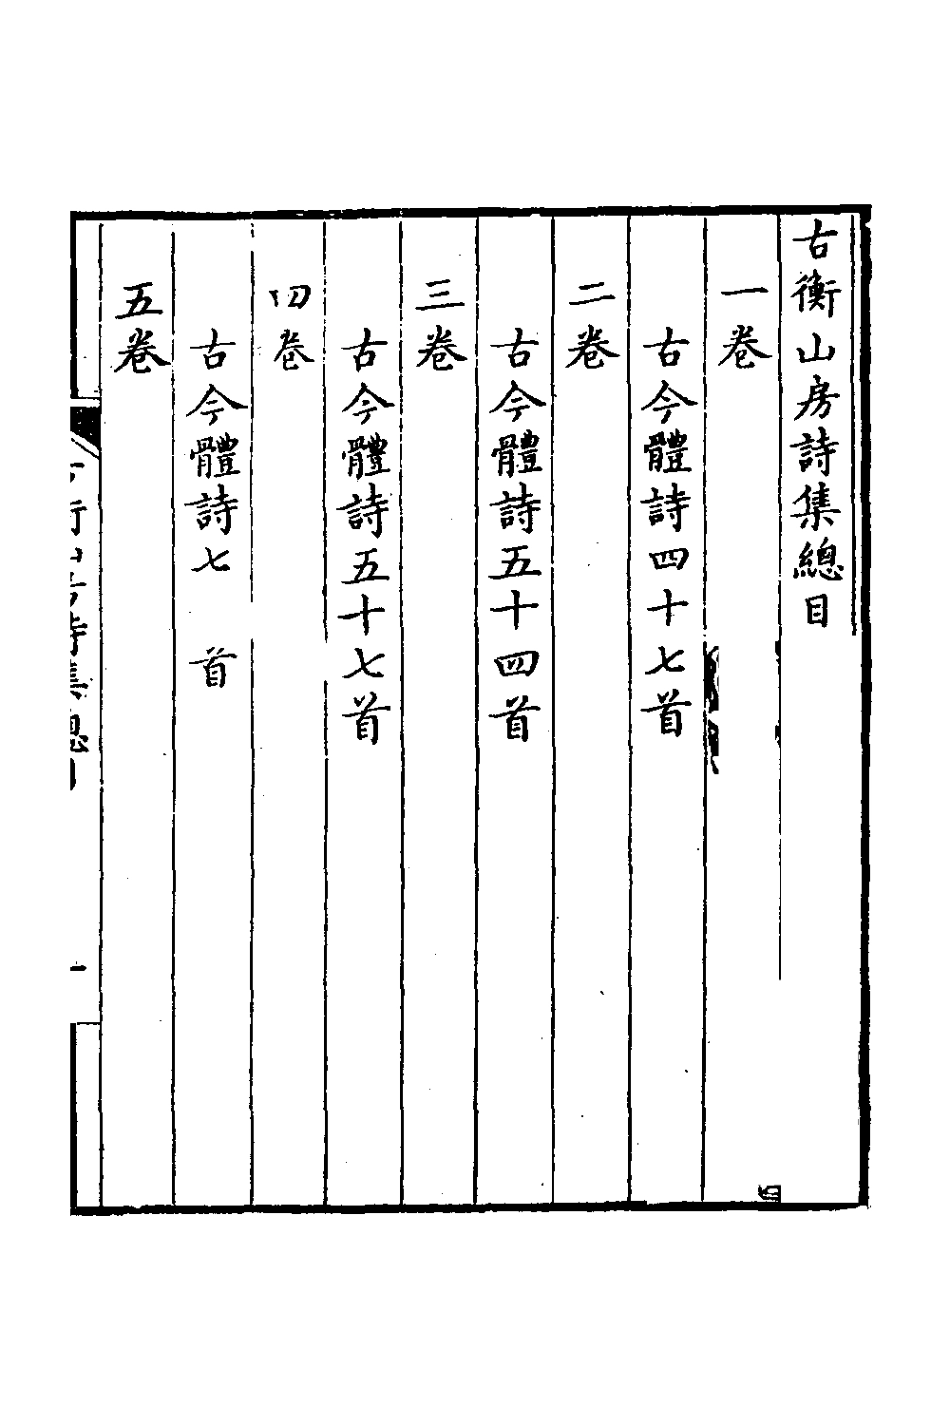 古衡山房詩集總目
一卷
古今體詩四十七首
二卷
古今體詩五十四首
三卷
古今體詩五十七首
四卷
古今體詩七 首
五卷